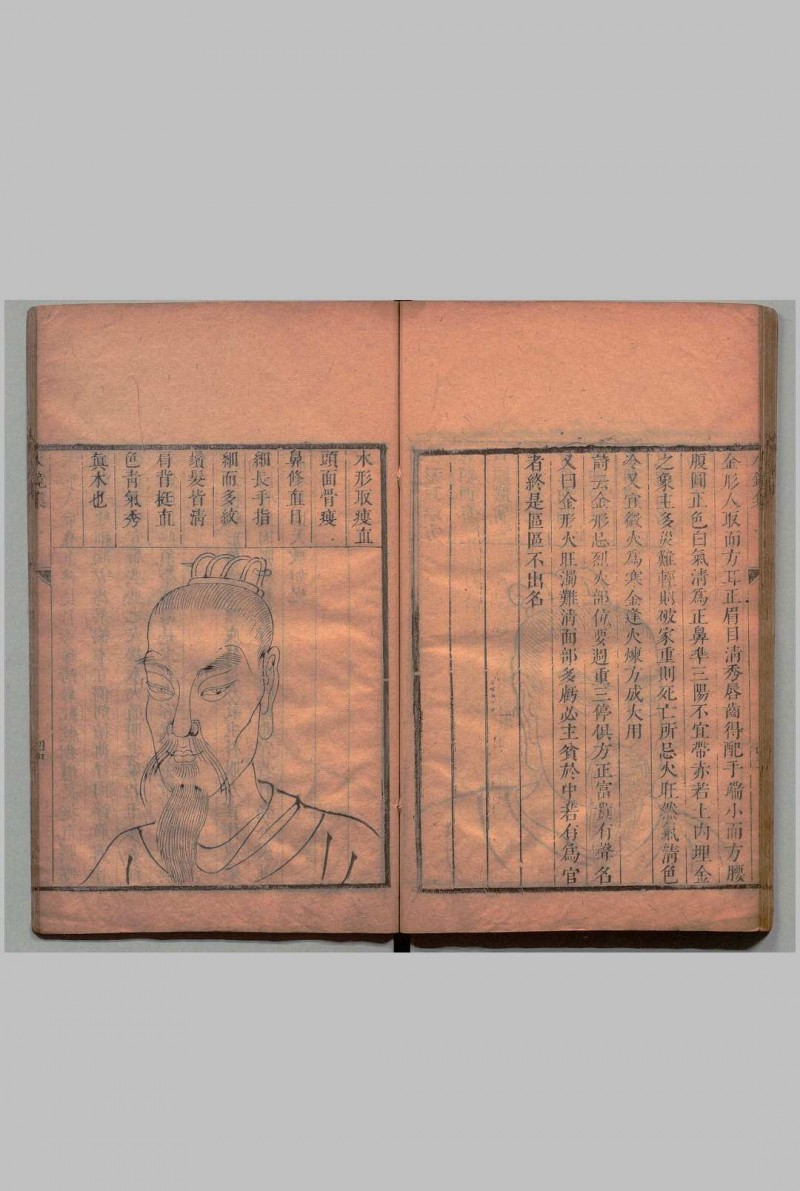 金形人取面方耳正眉目清秀唇齒得配手端小而方腰
腹圓正色白氣清為正鼻準三陽不宜帶赤若土內埋金
之象主多災難輕則破家重則死亡所忌火旺然氣清色
冷又宜微火為寒金逢火煉方成大用
詩云金形忌烈火部位要週重三停俱方正富貴有聲名
又曰金形火旺濁難清面部多虧必主貧於中若有為官
者終是區區不出名
木形取瘦直
頭面骨瘦
鼻修直目
細長手指
細而多紋
鬚髮皆清
肩背挺直
色青氣秀
真木也